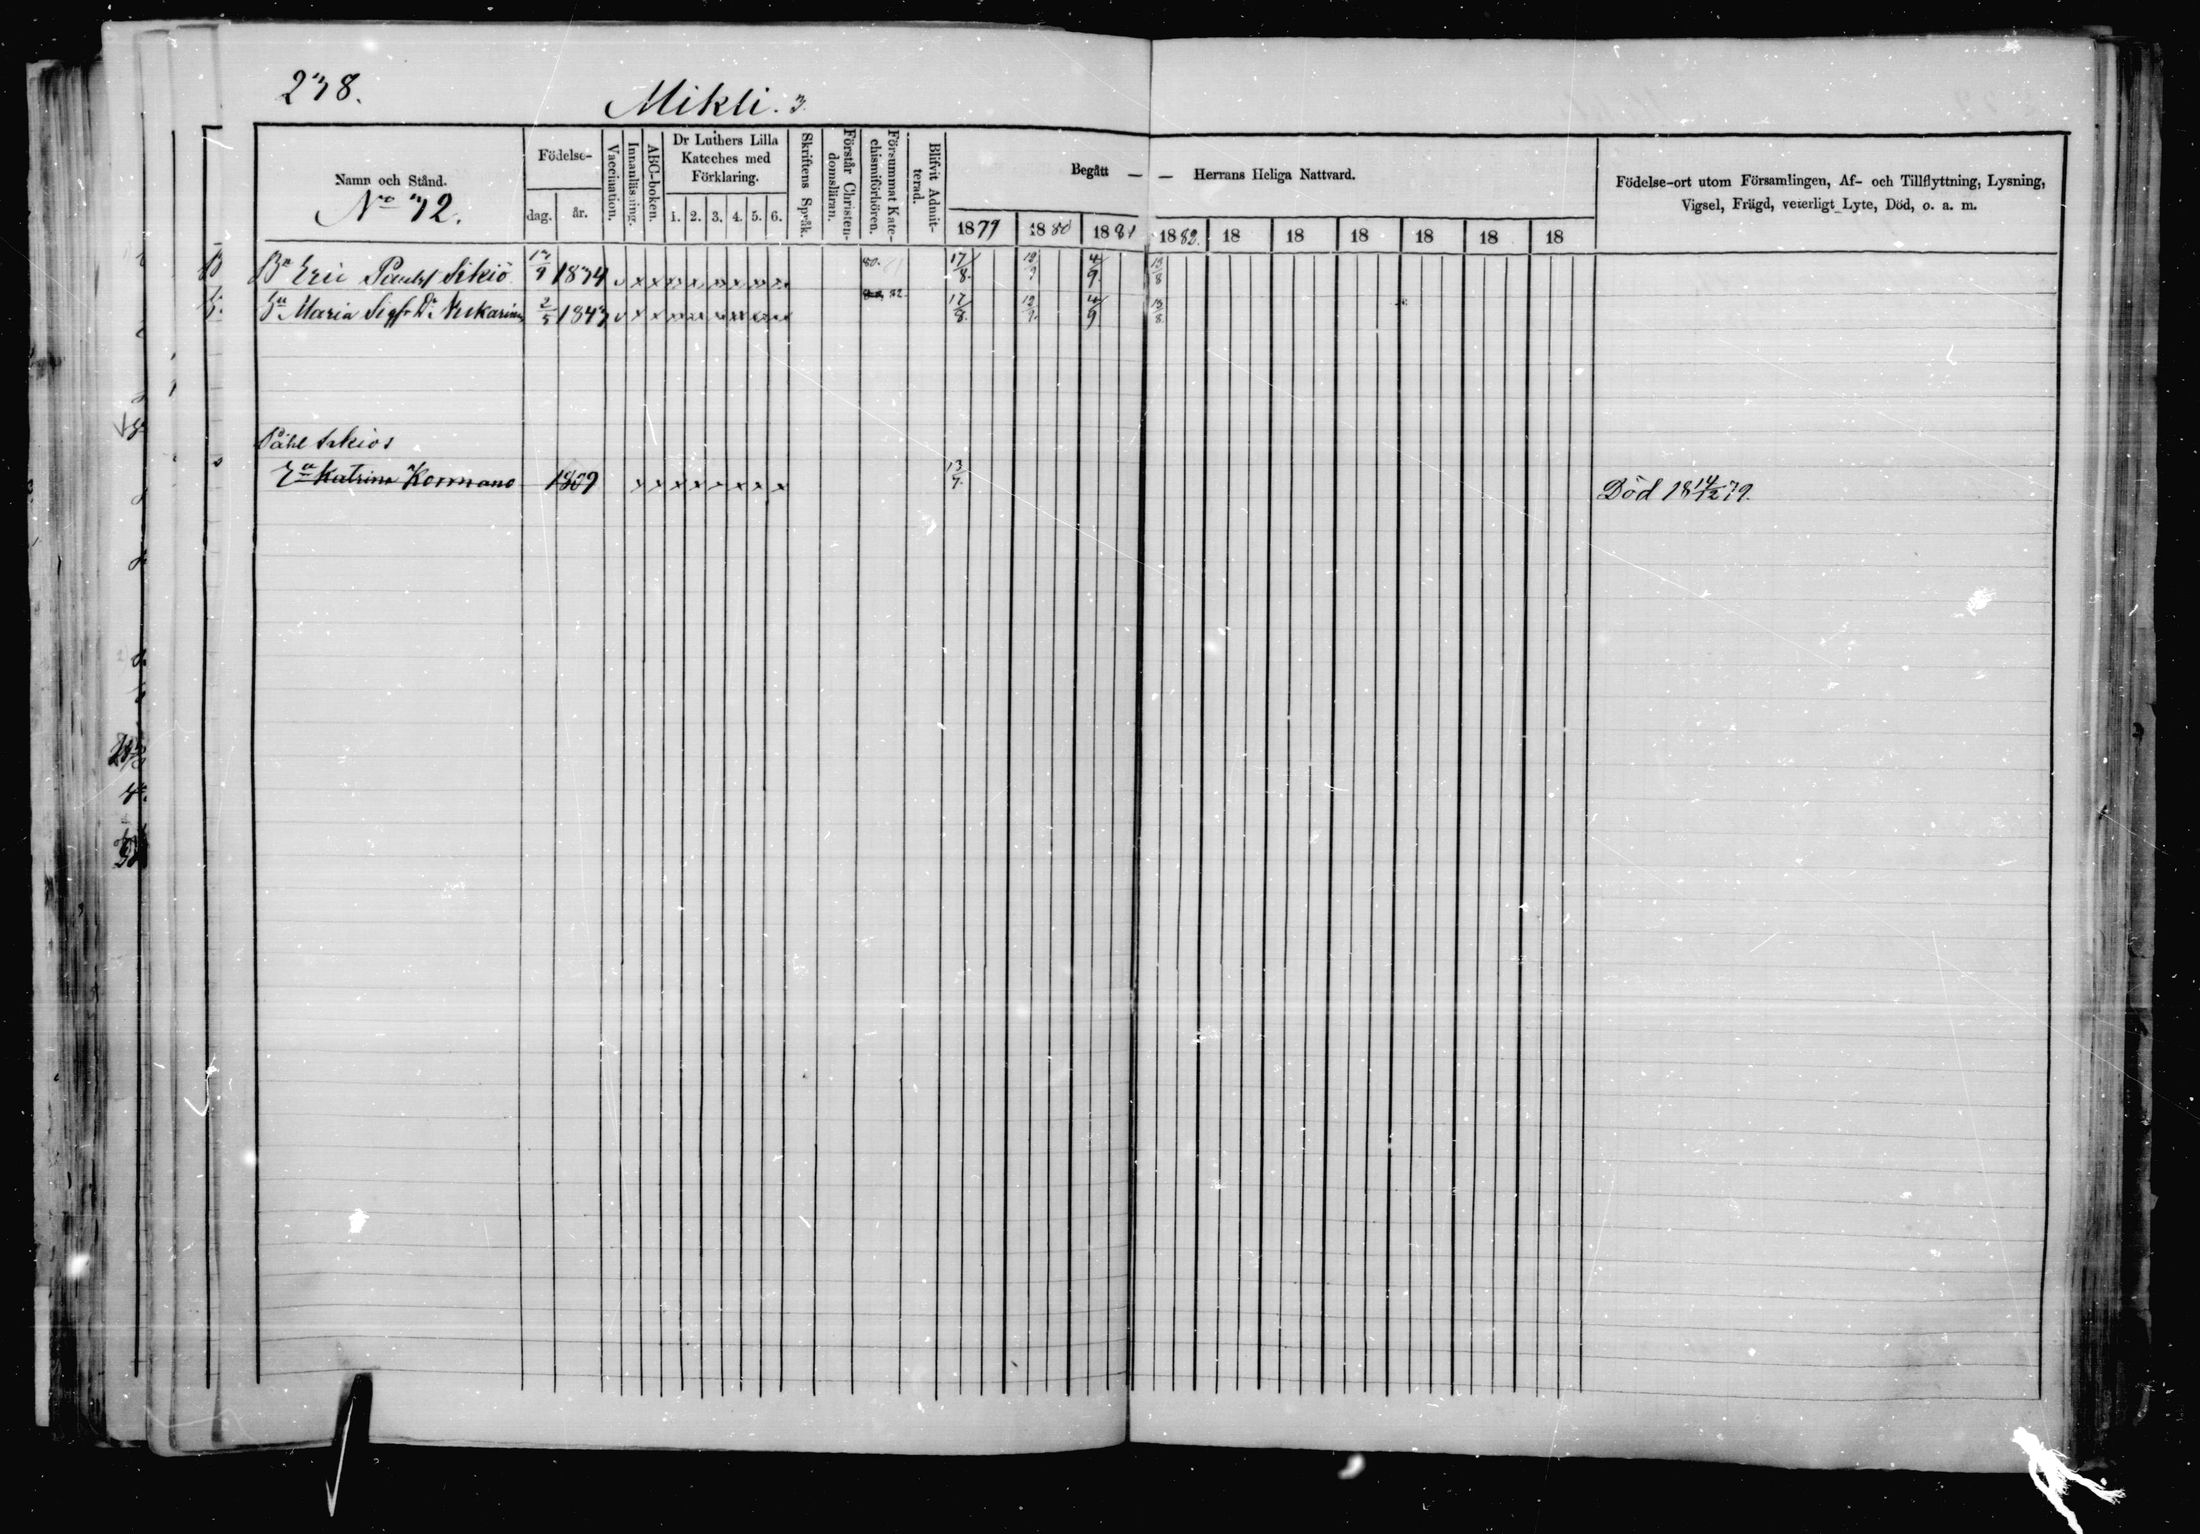 238.
Mikli. 3.
Namn och Stånd.
No 32.
Födelse-
dag. år.
Vaccination.
Innanläsning.
ABC-boken.
Dr Luthers Lilla
Kateches med
Förklaring.
1. 2. 3. 4. 5. 6.
Skriftens Språk.
Förstår Christen-
domsläran.
Försummat Kate-
chismiförhören.
Blifvit Admit-
terad.
Begått — — Herrans Heliga Nattvard.
1879 1880 1881 1882. 18 18 18 18 18 18
Födelse-ort utom Församlingen, Af- och Tillflyttning, Lysning,
Vigsel, Frägd, veterligt Lyte, Död, o. a. m.
B Bn Eric Paulss Sikiö 13/9 1834 v x x x x x x x x 80. 17/8. 12/9 4/9. 13/8
Hu Maria Sigfr Dr 2/5 1843 v x x x x x x x x 82 17/8. 12/9. 4/9 13/8
Påhl
Ea Katrina Kormano 1809 x x x x x x x x 13/7. Död 18 14/12 79.